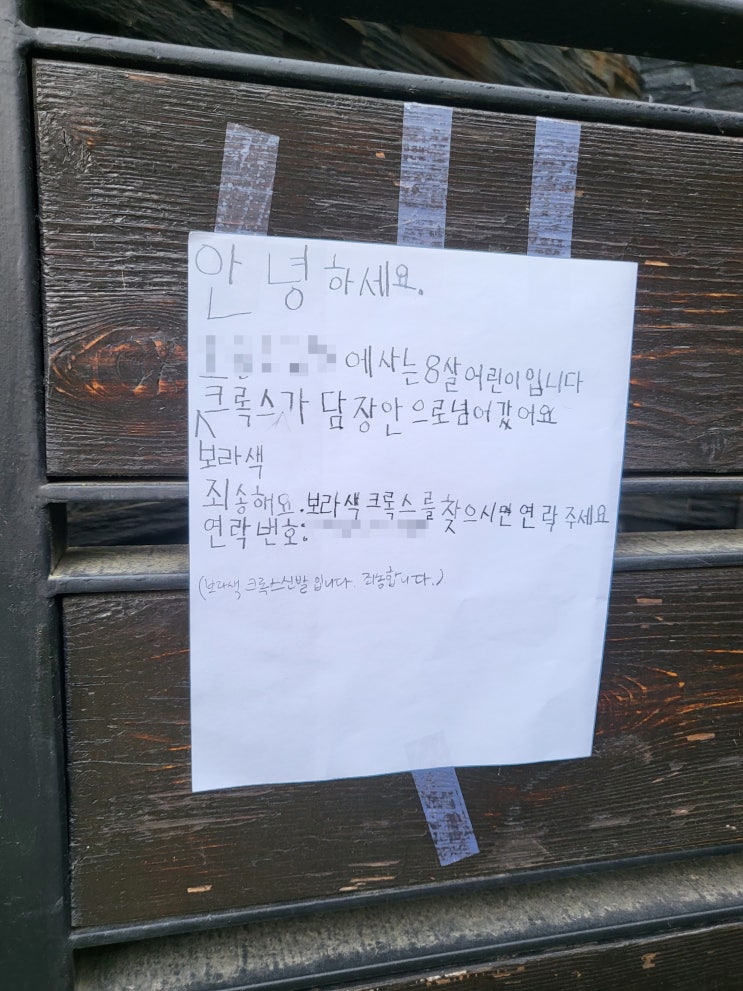 안녕하세요.
에 사는 8살 어린이입니다
크록스가 담장안으로넘어갔어요
보라색
죄송해요. 보라색 크록스를 찾으시면 연락 주세요
연락번호:
(보라색 크록스신발 입니다. 죄송합니다.)